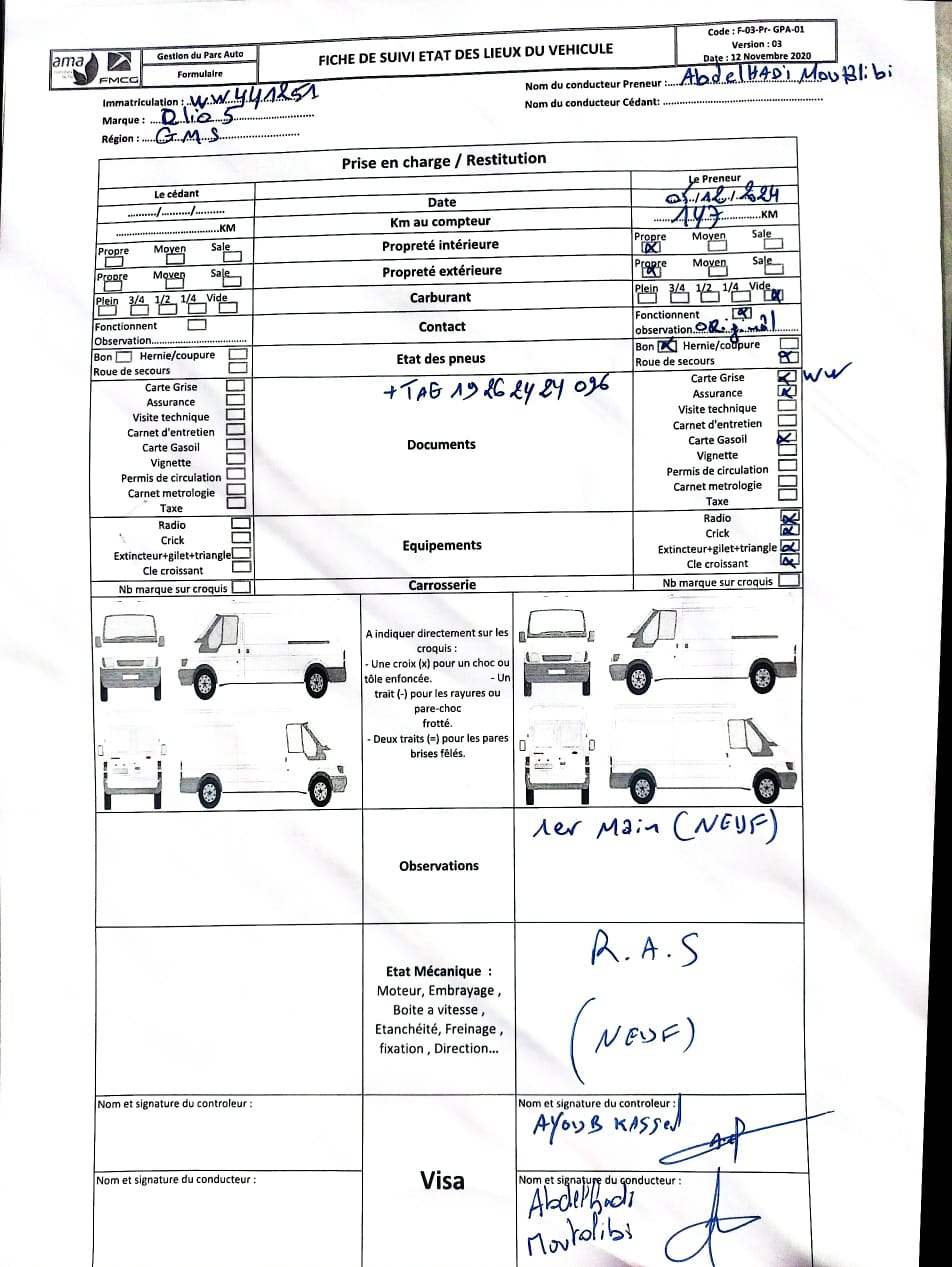 ama
FMCG
Gestion du Parc Auto
Formulaire
FICHE DE SUIVI ETAT DES LIEUX DU VEHICULE
Code : F-03-Pr- GPA-01
Version : 03
Date : 12 Novembre 2020
Immatriculation : WW441251
Marque : Clio 5
Région : GMS
Nom du conducteur Preneur : AbdelHADi MoutAlibi
Nom du conducteur Cédant:
Prise en charge / Restitution
Le cédant
Le Preneur
........../........../..........
Date
05/12/2024
KM
Km au compteur
147 KM
Propre Moyen Sale
Propreté intérieure
Propre Moyen Sale
Propre Moyen Sale
Propreté extérieure
Propre Moyen Sale
Plein 3/4 1/2 1/4 Vide
Carburant
Plein 3/4 1/2 1/4 Vide
Fonctionnent
Observation
Contact
Fonctionnent
observation ORiginal
Bon Hernie/coupure
Roue de secours
Etat des pneus
Bon Hernie/coupure
Roue de secours
Carte Grise
Assurance
Visite technique
Carnet d'entretien
Carte Gasoil
Vignette
Permis de circulation
Carnet metrologie
Taxe
+TAG 19 26 24 24 096
Documents
Carte Grise WW
Assurance
Visite technique
Carnet d'entretien
Carte Gasoil
Vignette
Permis de circulation
Carnet metrologie
Taxe
Radio
Crick
Extincteur+gilet+triangle
Cle croissant
Equipements
Radio
Crick
Extincteur+gilet+triangle
Cle croissant
Nb marque sur croquis
Carrosserie
Nb marque sur croquis
A indiquer directement sur les
croquis :
- Une croix (x) pour un choc ou
tôle enfoncée. - Un
trait (-) pour les rayures ou
pare-choc
frotté.
- Deux traits (=) pour les pares
brises fêlés.
Observations
1er Main (NEUF)
Etat Mécanique :
Moteur, Embrayage ,
Boite a vitesse ,
Etanchéité, Freinage ,
fixation , Direction...
R.A.S
(NEUF)
Nom et signature du controleur :
Nom et signature du controleur :
AYOUB KASSed
Visa
Nom et signature du conducteur :
Nom et signature du conducteur :
Abdelhadi
Moutalibi